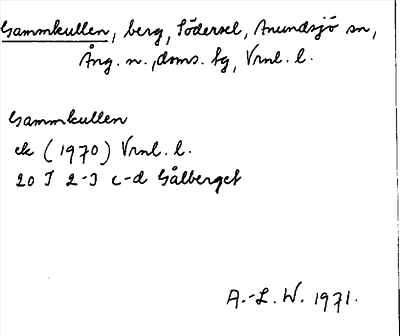 Gammkullen, berg, Södersel, Anundsjö sn,
Ång. n., doms. fg, Vrnl. l.
Gammkullen
ek (1970) Vrnl. l.
20 I 2-3 c-d Gålberget
A.-L. W. 1971.